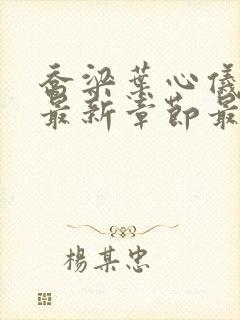 乔梁葉心儀
最新章節最
楊某忠